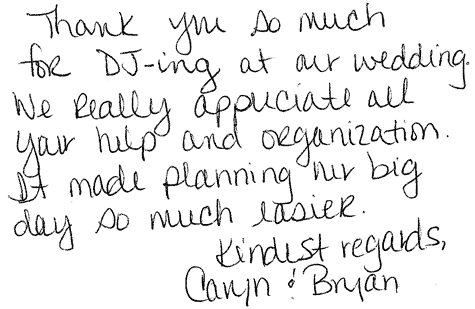 Thank you so much
for DJ-ing at our wedding.
We really appreciate all
your help and organization.
It made planning our big
day so much easier.
Kindest regards,
Caryn & Bryan